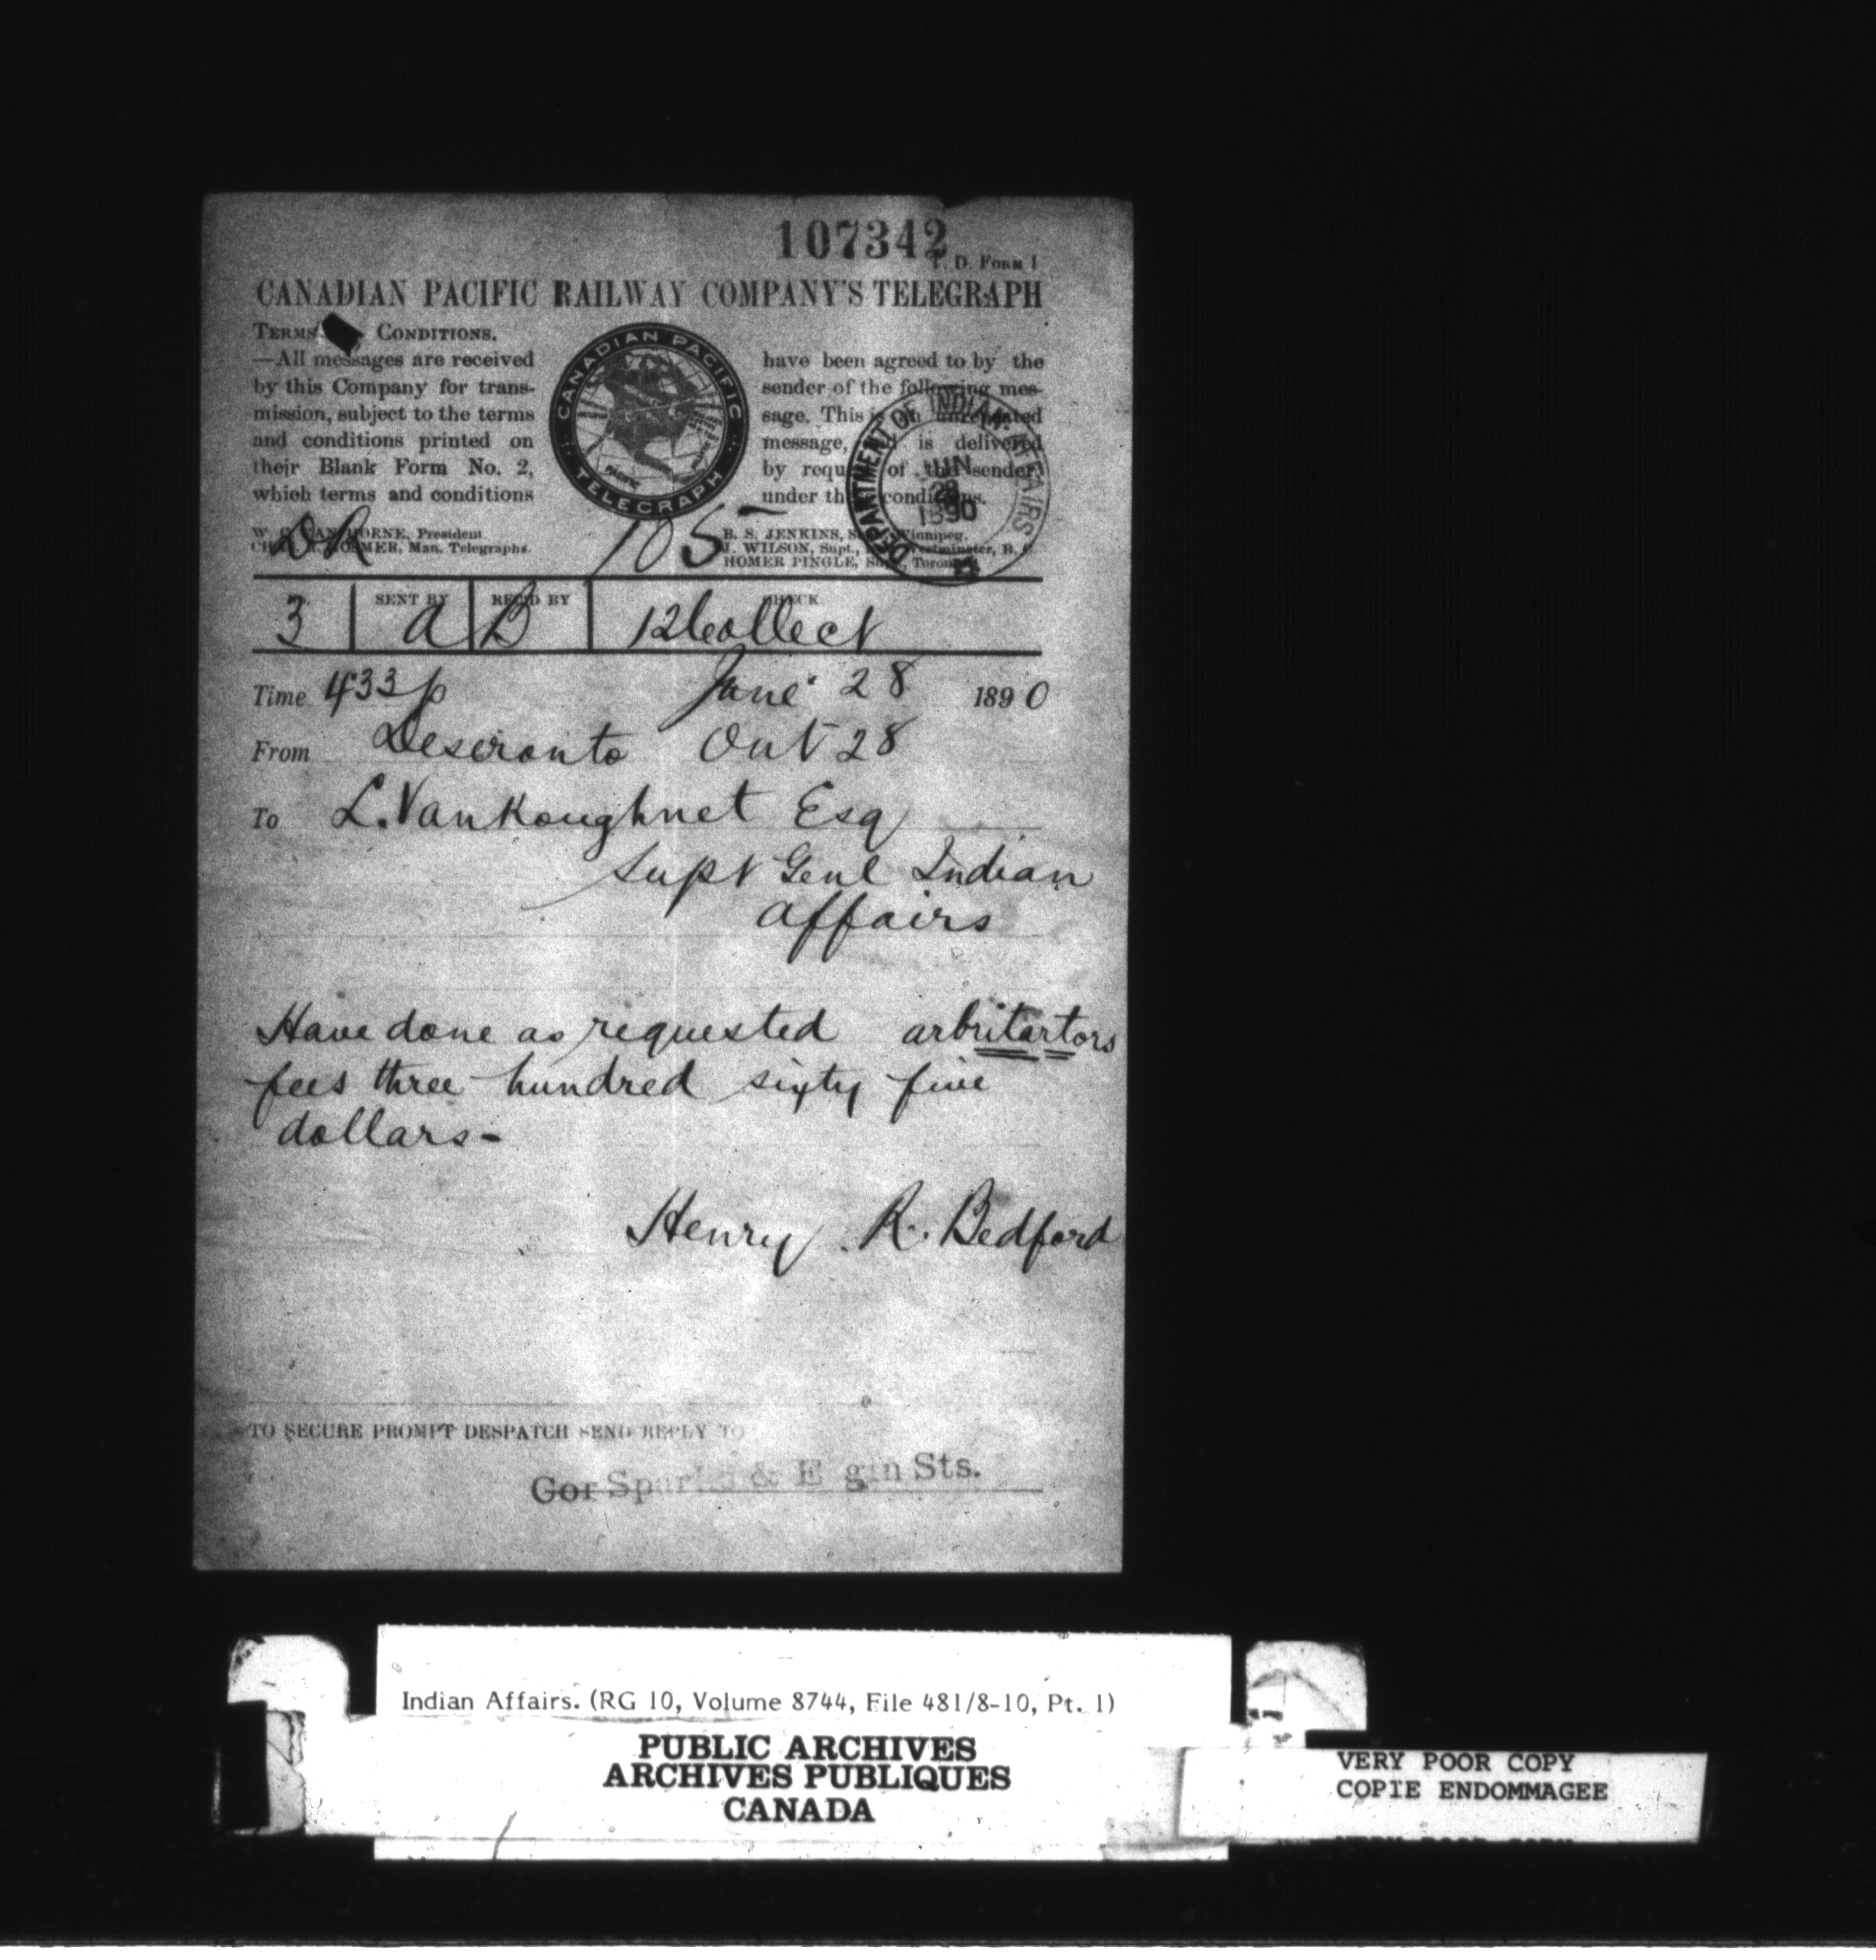 107342
T. D. FORM 1
CANADIAN PACIFIC RAILWAY COMPANY'S TELEGRAPH
TERMS CONDITIONS.
—All messages are received
by this Company for trans-
mission, subject to the terms
and conditions printed on
their Blank Form No. 2,
which terms and conditions
CANADIAN PACIFIC
TELEGRAPH
have been agreed to by the
sender of the following mes-
sage. This is an unrepeated
message, and is delivered
by request of the sender
under the conditions.
DEPARTMENT OF INDIAN AFFAIRS
JUN
28
1890
W. C. VAN HORNE, President
HOSMER, Man. Telegraphs.
DR
105
B. S. JENKINS, Supt., Winnipeg.
J. WILSON, Supt., Westminster, B. C.
HOMER PINGLE, Supt., Toronto
3 SENT BY a REC'D BY B CHECK 12 Collect
Time 433 p June 28 1890
From Deseronto Ont 28
To L. VanKoughnet Esq
Supt Genl Indian
affairs
Have done as requested arbritartors
fees three hundred sixty five
dollars-
Henry R. Bedford
TO SECURE PROMPT DESPATCH SEND REPLY TO
Cor Sparks & Elgin Sts.
Indian Affairs. (RG 10, Volume 8744, File 481/8-10, Pt. 1)
PUBLIC ARCHIVES
ARCHIVES PUBLIQUES
CANADA
VERY POOR COPY
COPIE ENDOMMAGEE